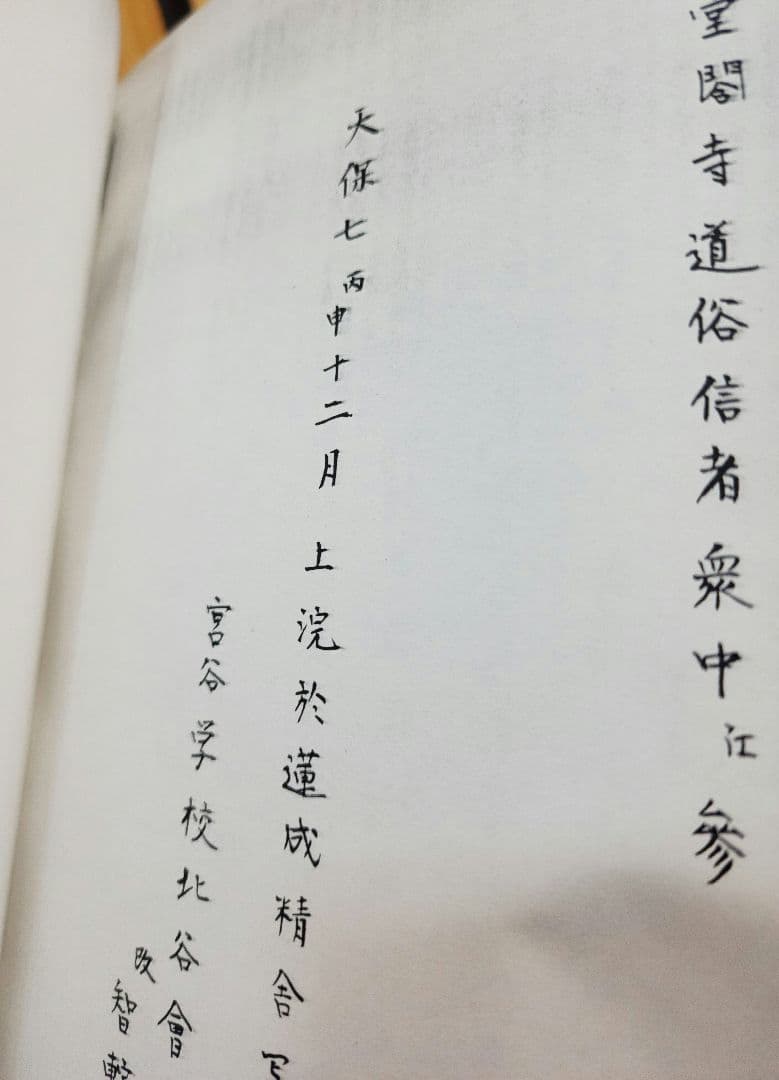 堂閣寺道俗信者衆中江參
天保七丙申十二月上浣於蓮成精舎
宮谷学校北谷會
改智